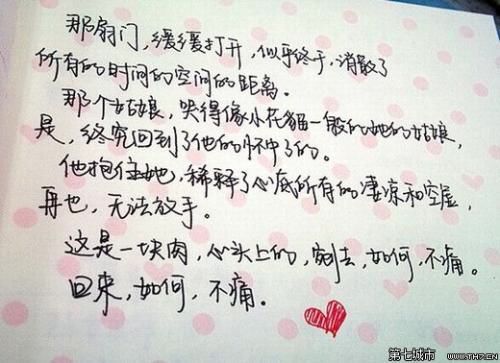 那扇门,缓缓打开,似乎终于,消散了
所有的时间的空间的距离。
那个姑娘,哭得像小花猫一般的她的姑娘,
是,终究回到了他的怀中了的。
他抱住她,稀释了心底所有的凄凉和空虚,
再也,无法放手。
这是一块肉,心头上的,割去,如何,不痛。
回来,如何,不痛。
第七城市 WWW.TH7.CN